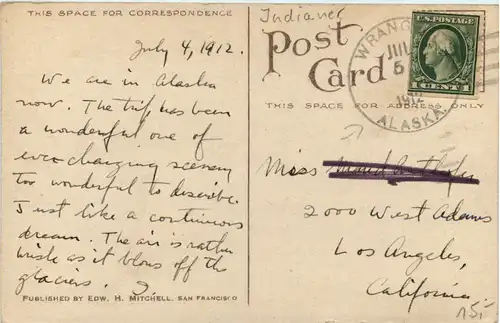 THIS SPACE FOR CORRESPONDENCE
July 4, 1912.
We are in Alaska
now. The trip has been
a wonderful one of
ever-changing scenery
too wonderful to describe.
Just like a continuous
dream. The air is rather
brisk as it blows off the
glaciers.
PUBLISHED BY EDW. H. MITCHELL, SAN FRANCISCO
Indianer
Post
Card
THIS SPACE FOR ADDRESS ONLY
WRANG
JUL
5
1912
ALASKA.
U.S. POSTAGE
1 CENT 1
Miss
2000 West Adams
Los Angeles,
California
15,-